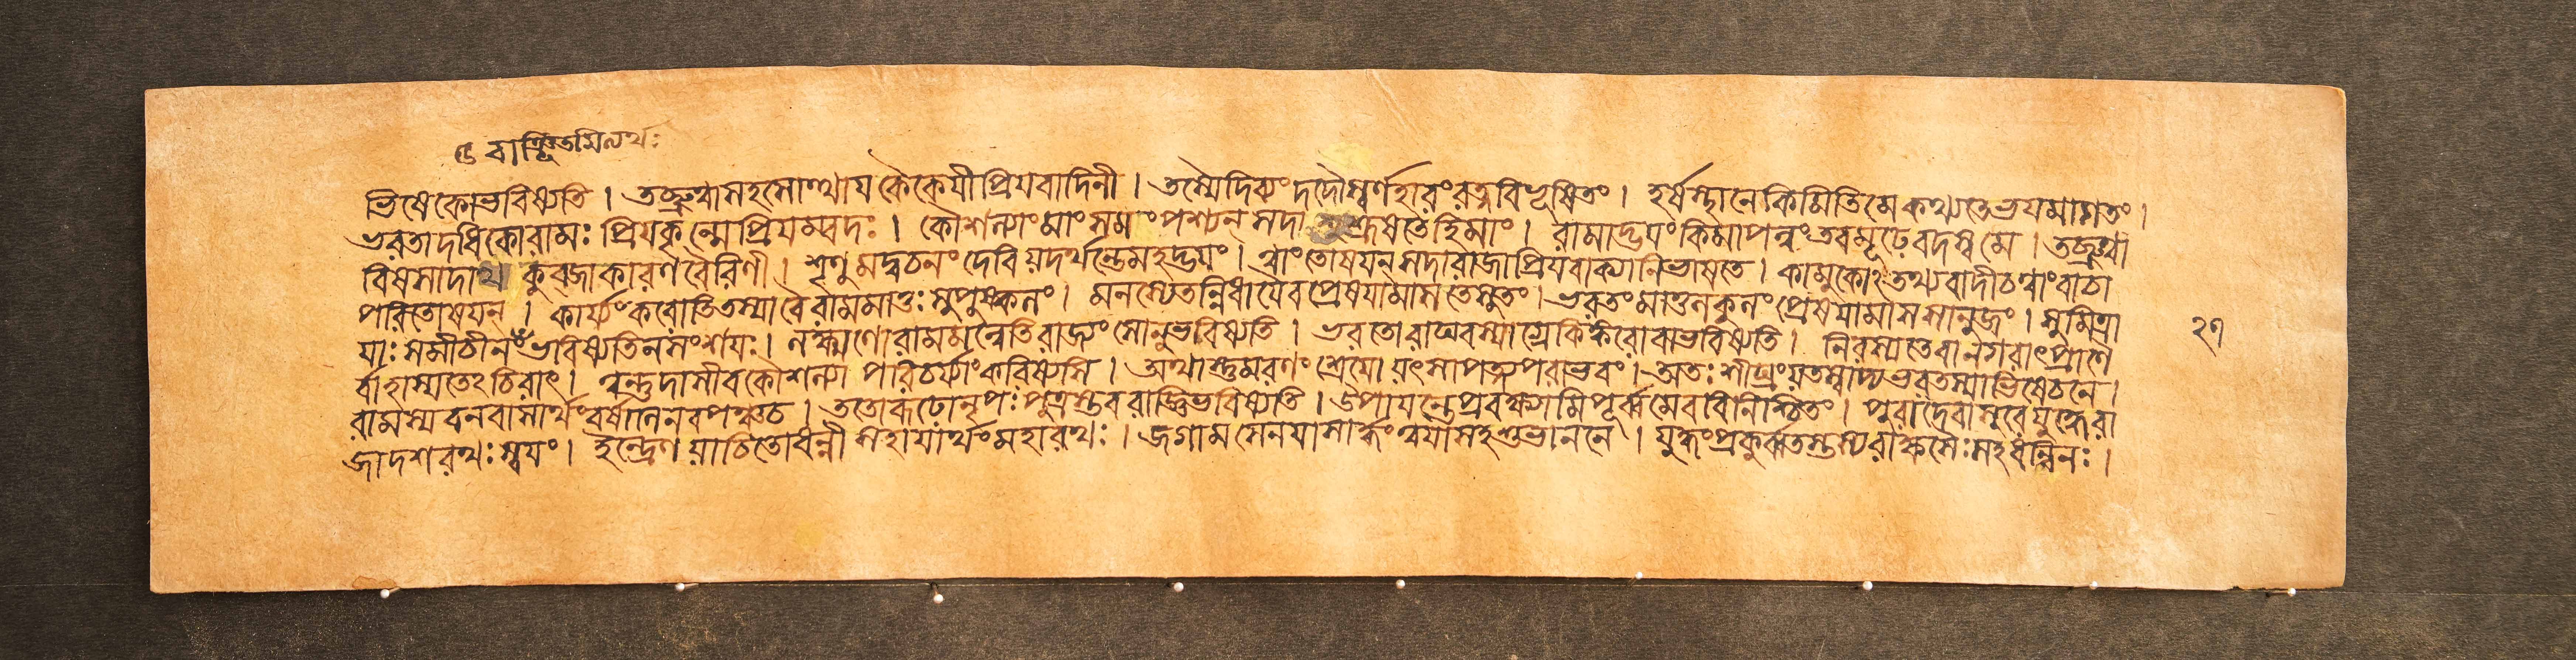 ৫ বাঞ্ছিতমিত্যর্থঃ
ভিষেকোভবিষ্যতি । তচ্ছ্রুত্বাসহসোত্থায কৈকেযীপ্রিযবাদিনী । তস্যৈদিব্যংদদৌস্বর্ণহারংরত্নবিভূষিতং । হর্ষস্থানেকিমিতিমেকথ্যতেভযমাগতং ।
ভরতাদধিকোরামঃ প্রিযকৃন্মেপ্রিযম্বদঃ । কৌশল্যাংমাংসমাংপশ্যন্ সদাশুশ্রূষতেহিমাং । রামাদ্ভযংকিমাপন্নংতবমূঢ়েবদস্ব মে । তচ্ছ্রুত্বা
বিষসাদাথ কুব্জাকারণবৈরিণী । শৃণু মদ্বচনং দেবিয়দর্থন্তেমহদ্ভযং । ত্বাংতোষযন্ সদারাজাপ্রিযবাক্যানিভাষতে । কামুকোঽতথ্যবাদীচত্বাংবাচা
পরিতোষযন্ । কার্য্যংকরোতিতস্যাবৈরামমাতুঃসুপুষ্কলং । মনস্যেতন্নিধাযৈবপ্রেষযামাসতেসুতং । ভরতংমাতুলকুলংপ্রেষযামাসসানুজং । সুমিত্রা
যাঃ সমীচীনংভবিষ্যতিনসংশযঃ । লক্ষ্মণোরামমন্বেতিরাজ্যংসোনুভবিষ্যতি । ভরতোরাঘবস্যাগ্রেকিঙ্করোবাভবিষ্যতি । নিরস্যতেবানগরাৎপ্রাণৈ
র্বাহাস্যতেঽচিরাৎ । ত্বন্তুদাসীবকৌশল্যা পরিচর্য্যাংকরিষ্যসি । অথাস্তুমরণংশ্রেযোয়ৎসাপত্ন্যপরাভবং । অতঃ শীঘ্রংয়তস্বাদ্যভরতস্যাভিষেচনে ।
রামস্যবনবাসার্থংবর্ষাণিনবপঞ্চচ । ততোরূঢ়োনৃপঃপুত্রস্তবরাজ্ঞিভবিষ্যতি । উপাযন্তেপ্রবক্ষ্যামিপূর্ব্বমেববিনিশ্চিতং । পুরাদেবাসুরেযুদ্ধেরা
জাদশরথঃস্বযং । ইন্দ্রেণ য়াচিতোধন্বী সহাযার্থংমহারথঃ । জগাম সেনযাসার্দ্ধংত্বযাসহশুভাননে । যুদ্ধংপ্রকুর্ব্বতস্তস্যরাক্ষসৈঃসহধন্বিনঃ ।
২৭